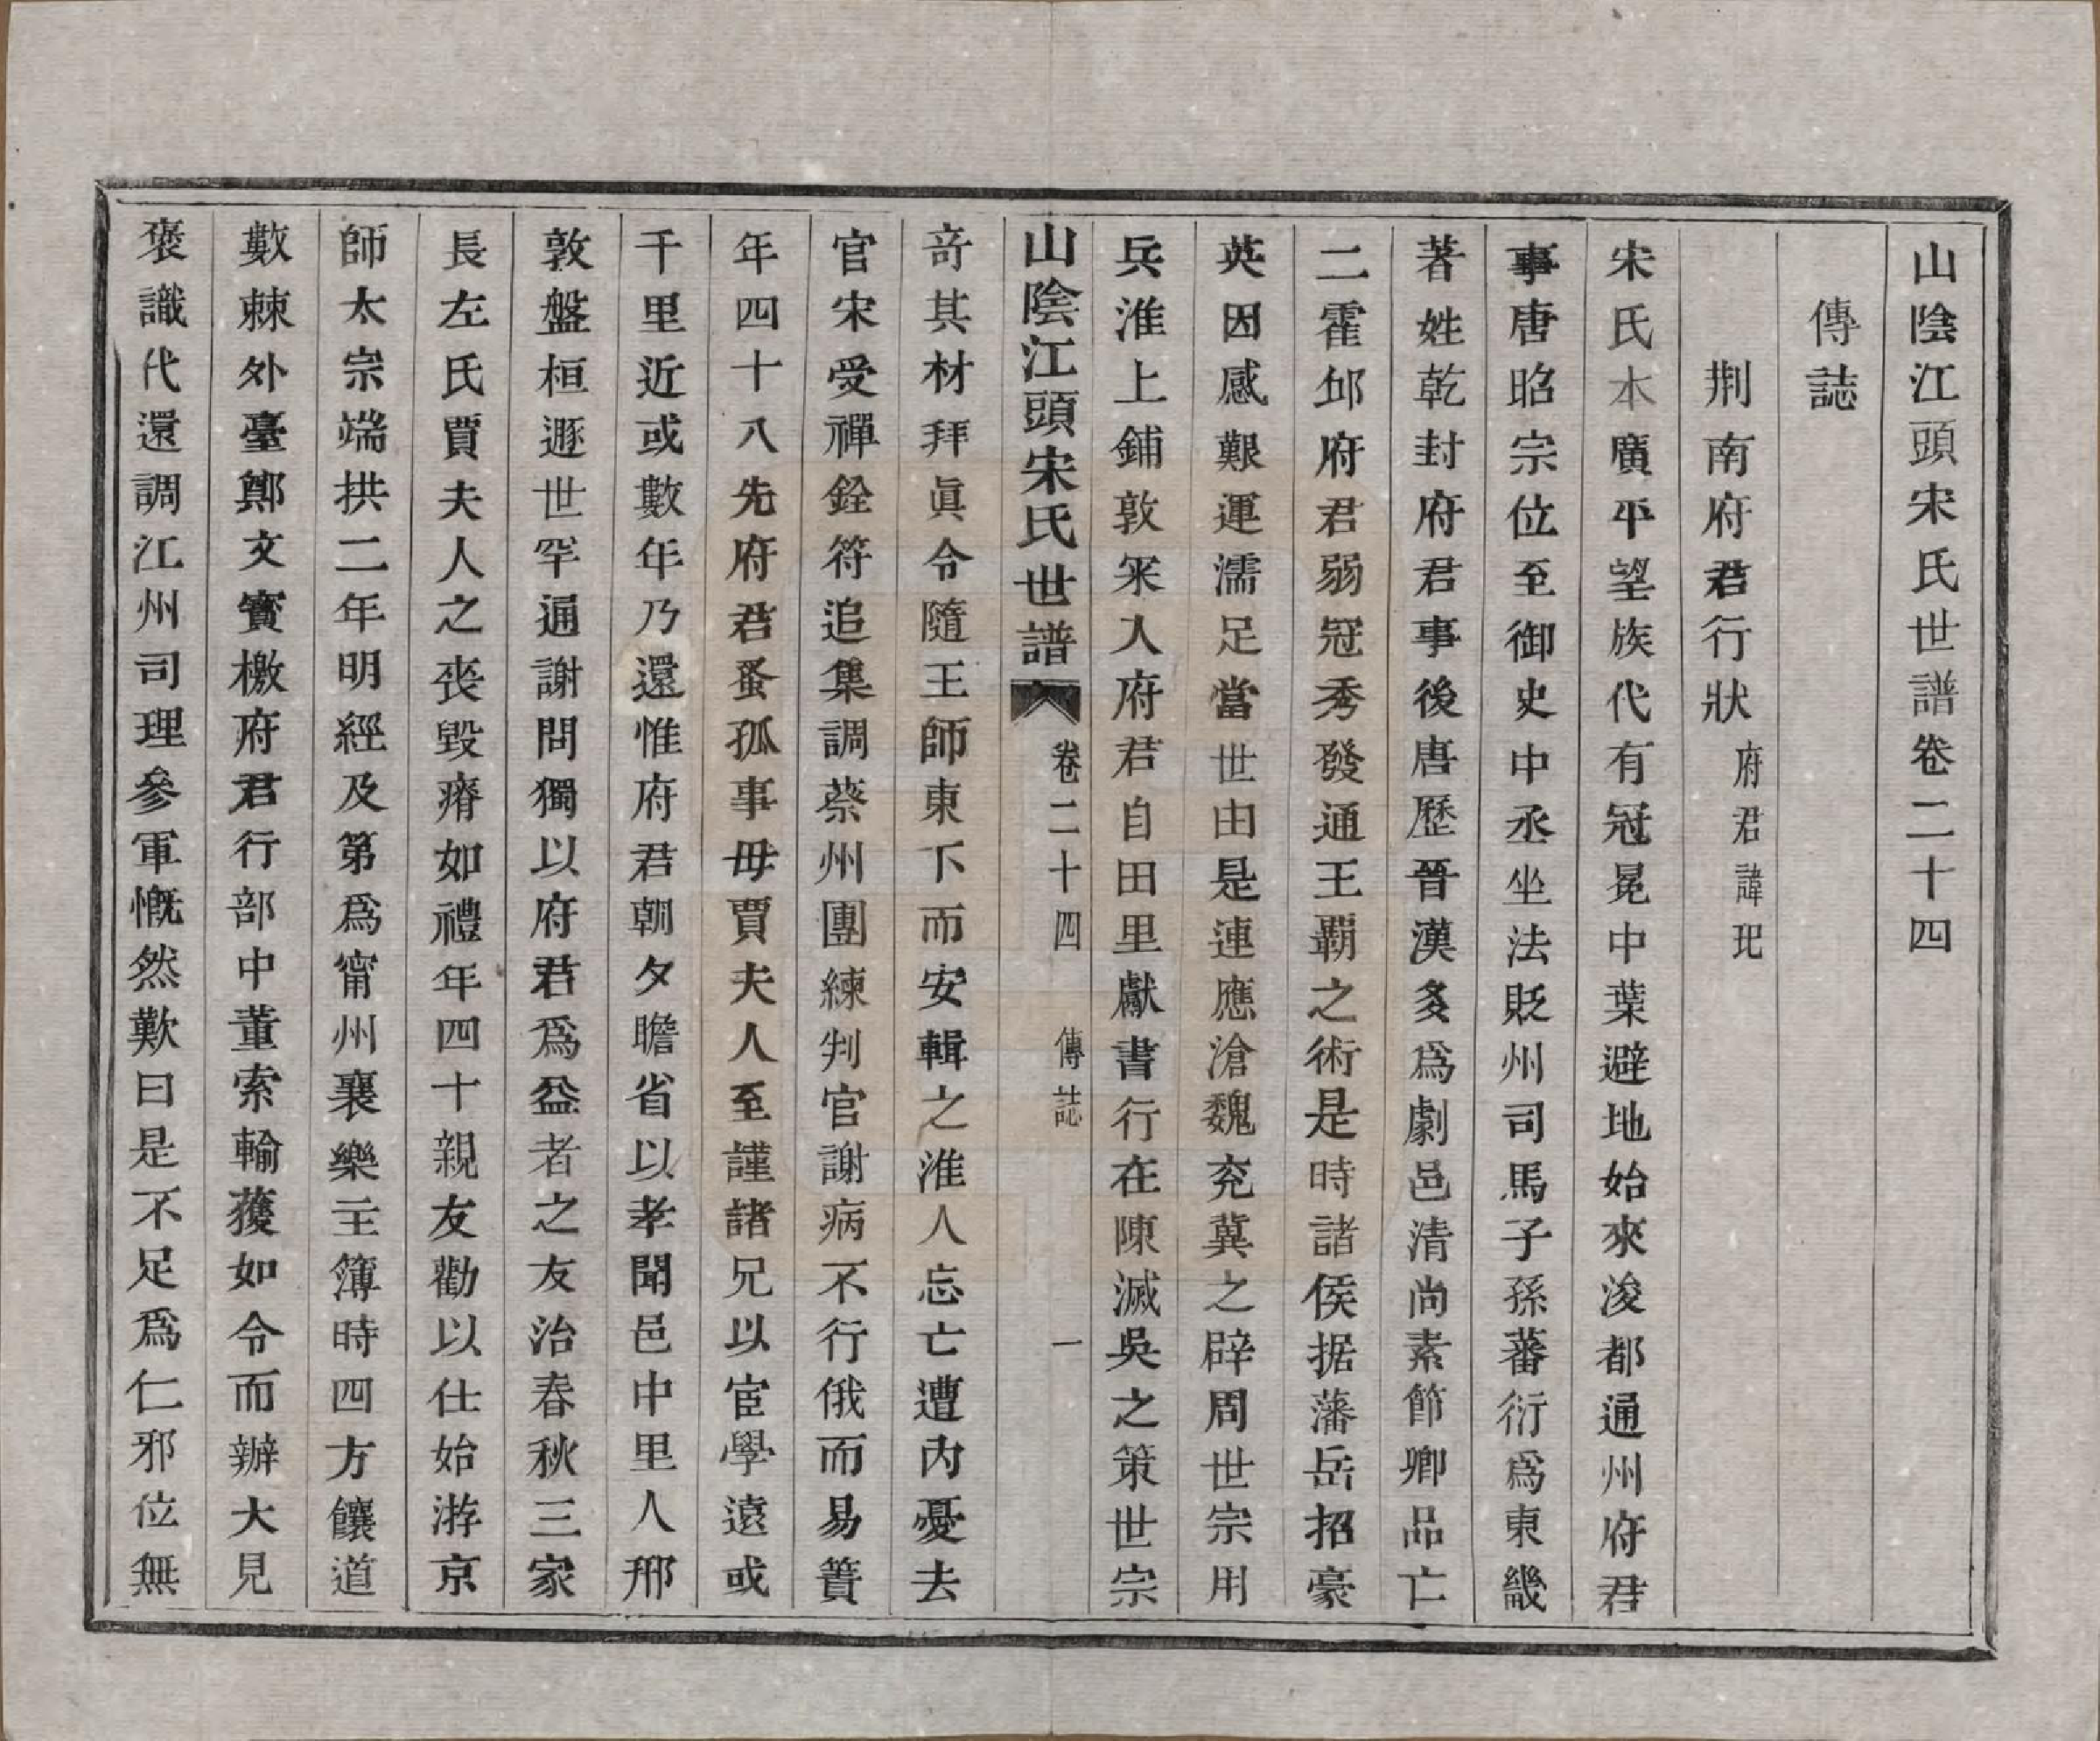 山陰江頭宋氏世譜卷二十四
傳誌
荆南府君行狀府君諱玘
宋氏本廣平望族代有冠冕中葉避地始來浚都通州府君
事唐昭宗位至御史中丞坐法貶州司馬子孫蕃衍爲東畿
著姓乾封府君事後唐歷晉漢多爲劇邑清尚素節卿品亡
二霍邱府君弱冠秀發通王霸之術是時諸侯据藩岳招豪
英因感艱運濡足當世由是連應滄魏兖冀之辟周世宗用
兵淮上鋪敦罙入府君自田里獻書行在陳滅吳之策世宗
山陰江頭宋氏世譜 卷二十四 傳誌 一
奇其材拜眞令隨王師東下而安輯之淮人忘亡遭內憂去
官宋受禪銓符追集調蔡州團練判官謝病不行俄而易簀
年四十八先府君蚤孤事毋賈夫人至謹諸兄以宦學遠或
千里近或數年乃還惟府君朝夕瞻省以孝聞邑中里人邢
敦盤桓遯世罕通謝問獨以府君爲益者之友治春秋三家
長左氏賈夫人之喪毀瘠如禮年四十親友勸以仕始游京
師太宗端拱二年明經及第爲甯州襄樂主簿時四方饟道
數棘外臺鄭文寶檄府君行部中董索輸蒦如令而辦大見
褒識代還調江州司理參軍慨然歎曰是不足爲仁邪位無